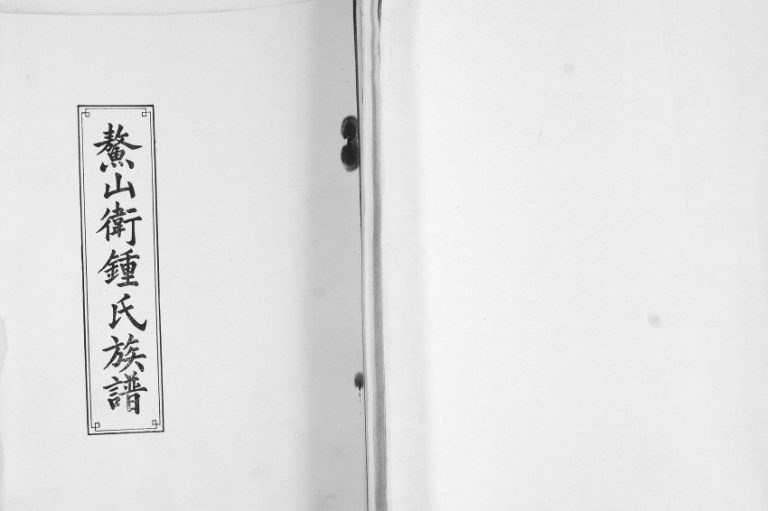 鰲山衛鍾氏族譜